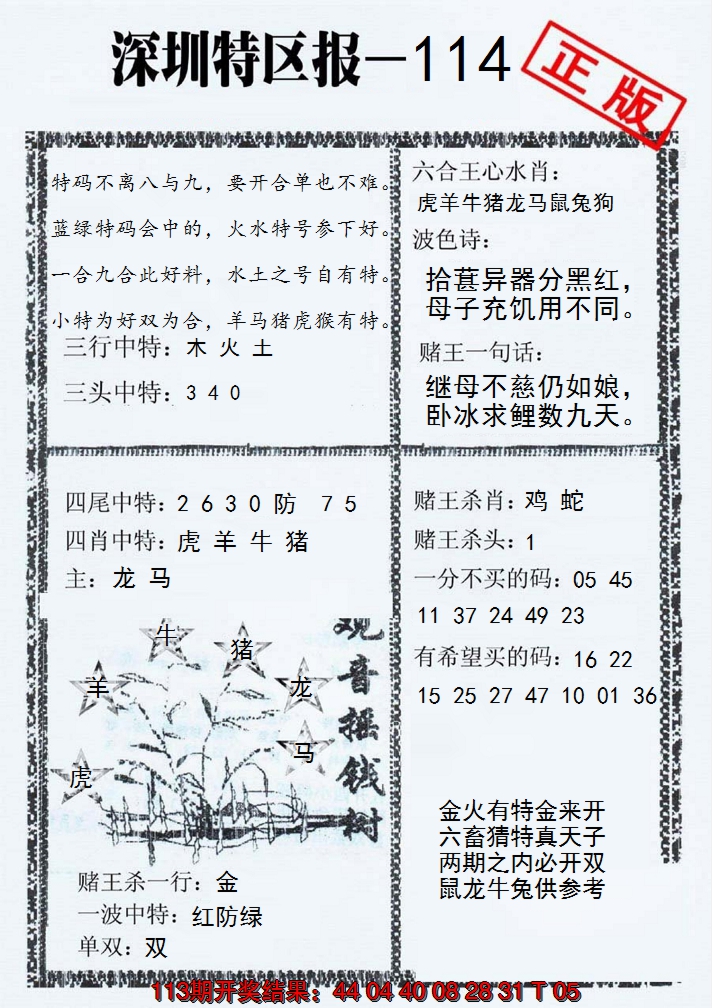 深圳特区报-114
正版
特码不离八与九，要开合单也不难。
蓝绿特码会中的，火水特号参下好。
一合九合此好料，水土之号自有特。
小特为好双为合，羊马猪虎猴有特。
三行中特：木 火 土
三头中特：3 4 0
六合王心水肖：
虎羊牛猪龙马鼠兔狗
波色诗：
拾葚异器分黑红，
母子充饥用不同。
赌王一句话：
继母不慈仍如娘，
卧冰求鲤数九天。
四尾中特：2 6 3 0 防 7 5
四肖中特：虎 羊 牛 猪
主：龙 马
赌王杀肖：鸡 蛇
赌王杀头：1
一分不买的码：05 45
11 37 24 49 23
有希望买的码：16 22
15 25 27 47 10 01 36
观音摇钱树
牛
猪
羊
龙
马
虎
金火有特金来开
六畜猜特真天子
两期之内必开双
鼠龙牛兔供参考
赌王杀一行：金
一波中特：红防绿
单双：双
113期开奖结果：44 04 40 08 28 31 T 05